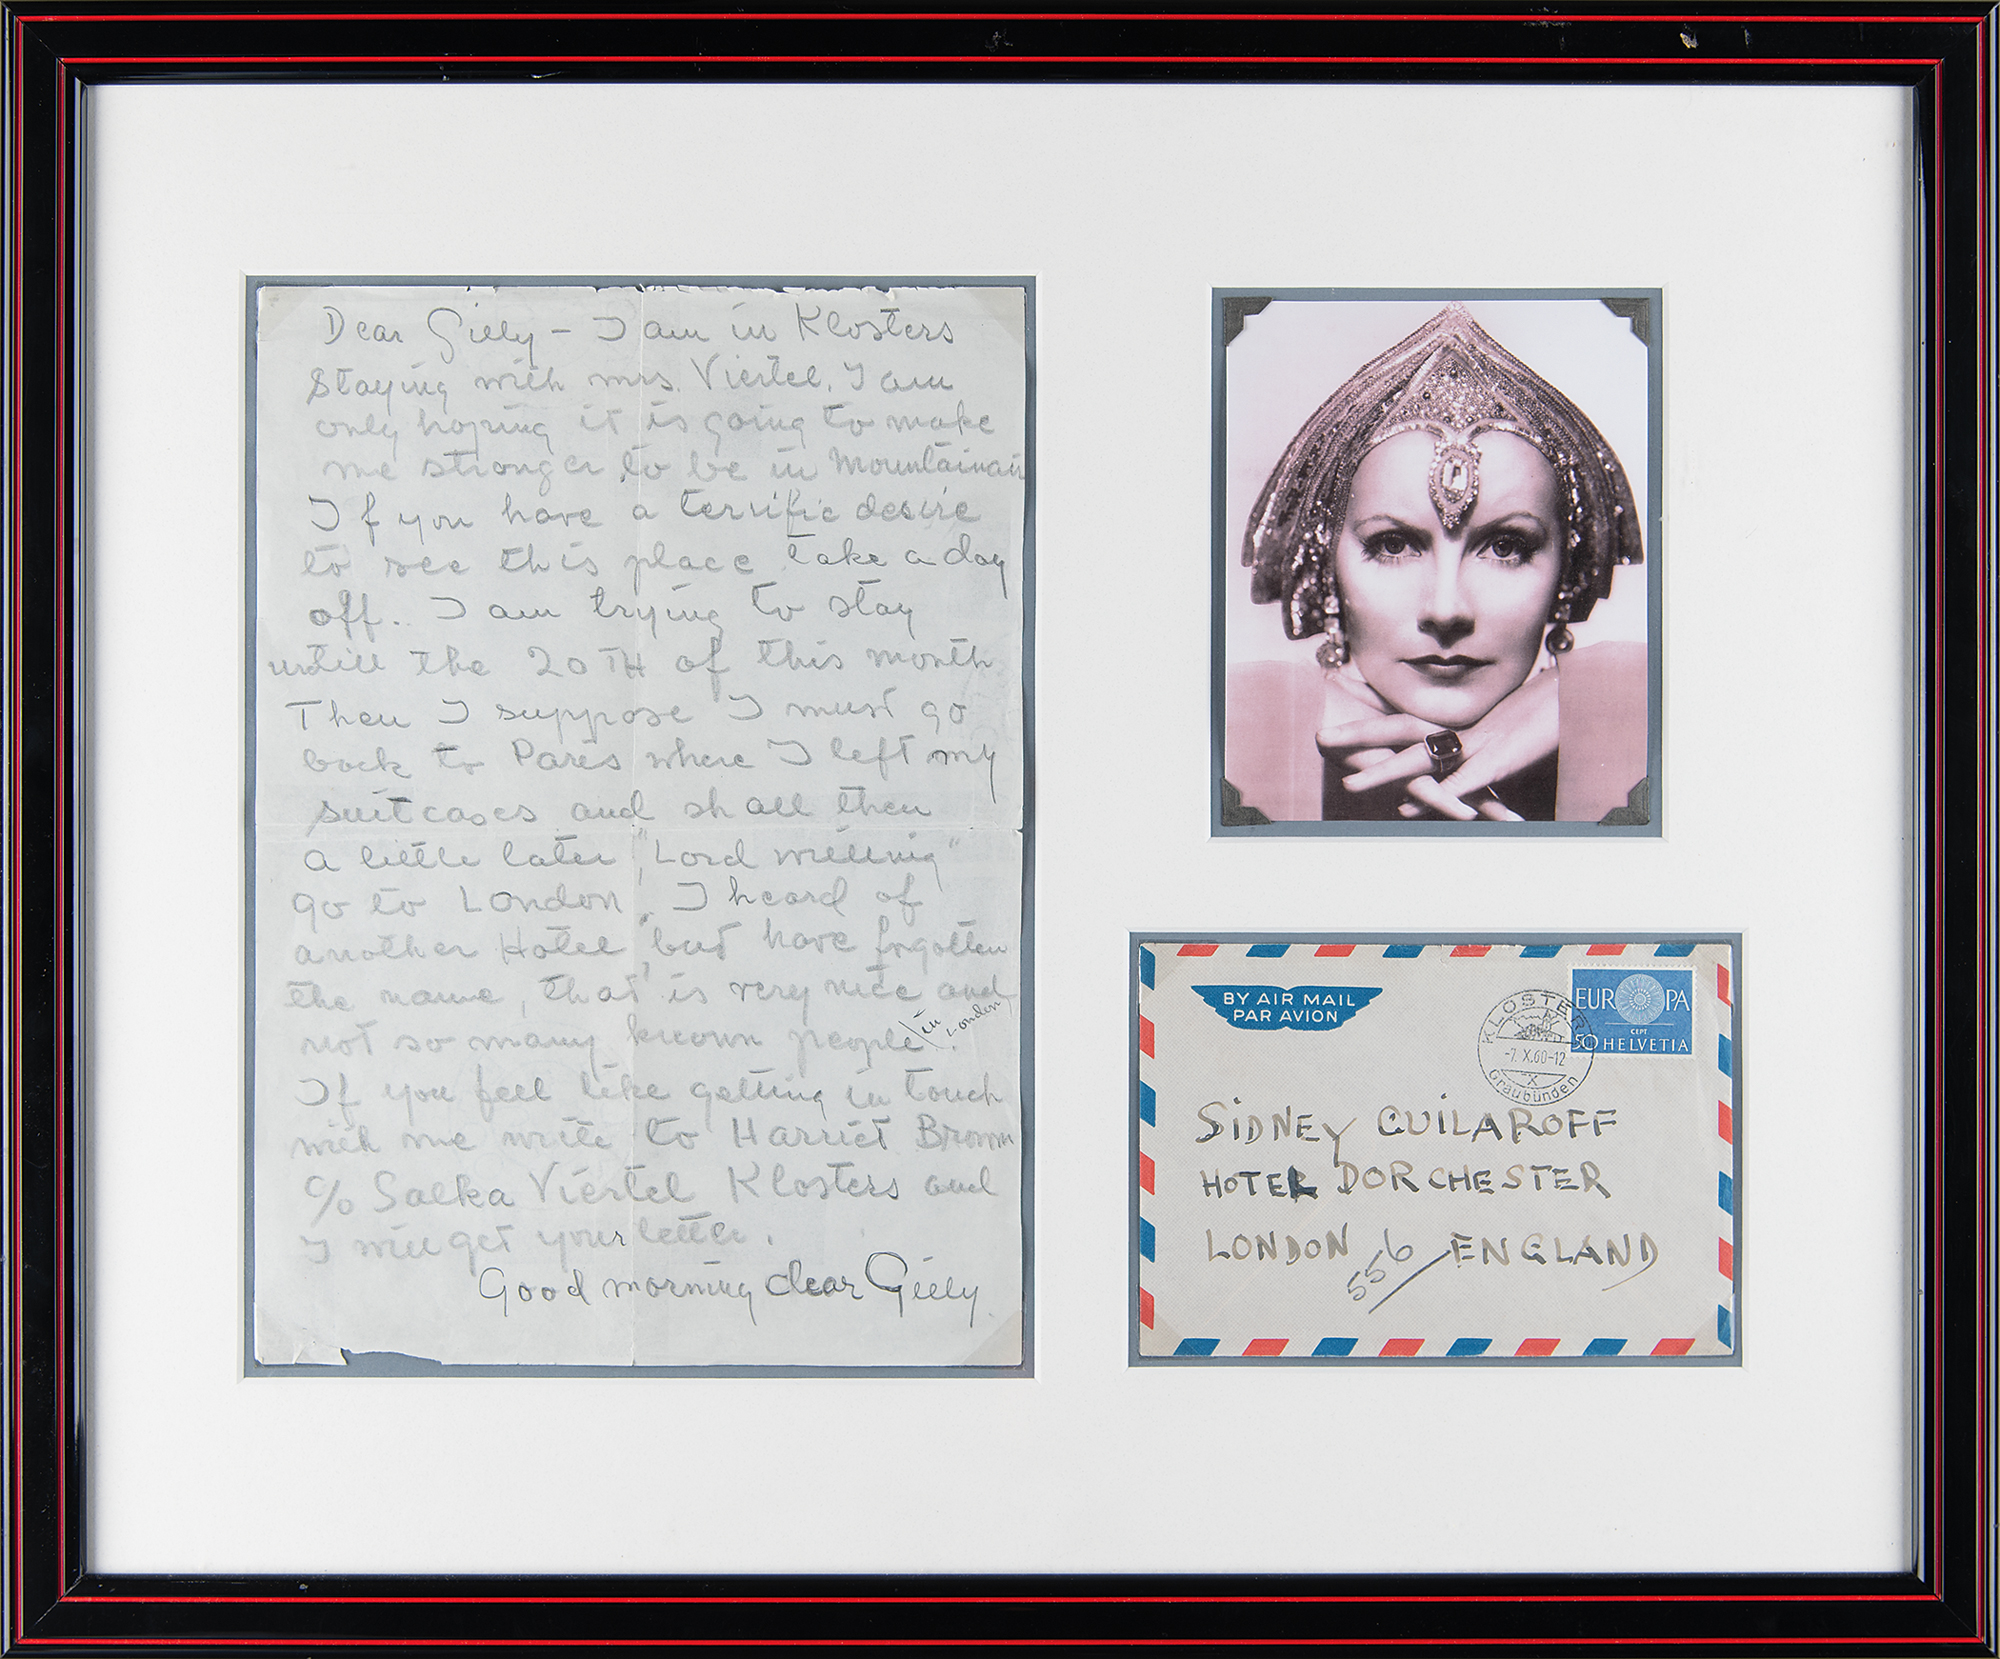 Dear Giely – I am in Klosters
staying with mrs. Viertel. I am
only hoping it is going to make
me stronger to be in Mountainair
If you have a terrific desire
to see this place take a day
off.. I am trying to stay
untill the 20TH of this month
Then I suppose I must go
back to Paris where I left my
suitcases and shall then
a little later, "Lord willing"
go to London. I heard of
another Hotel, but have forgotten
the name, that is very nice and
not so many known people \in London/.
If you feel like getting in touch
with me write to Harriet Brown
c/o Salka Viertel Klosters and
I will get your letter.
Good morning dear Giely.
BY AIR MAIL
PAR AVION
EUROPA
CEPT
50 HELVETIA
KLOSTERS
-7.X.60-12
X
Graubünden
SIDNEY GUILAROFF
HOTEL DORCHESTER
LONDON ENGLAND
556/